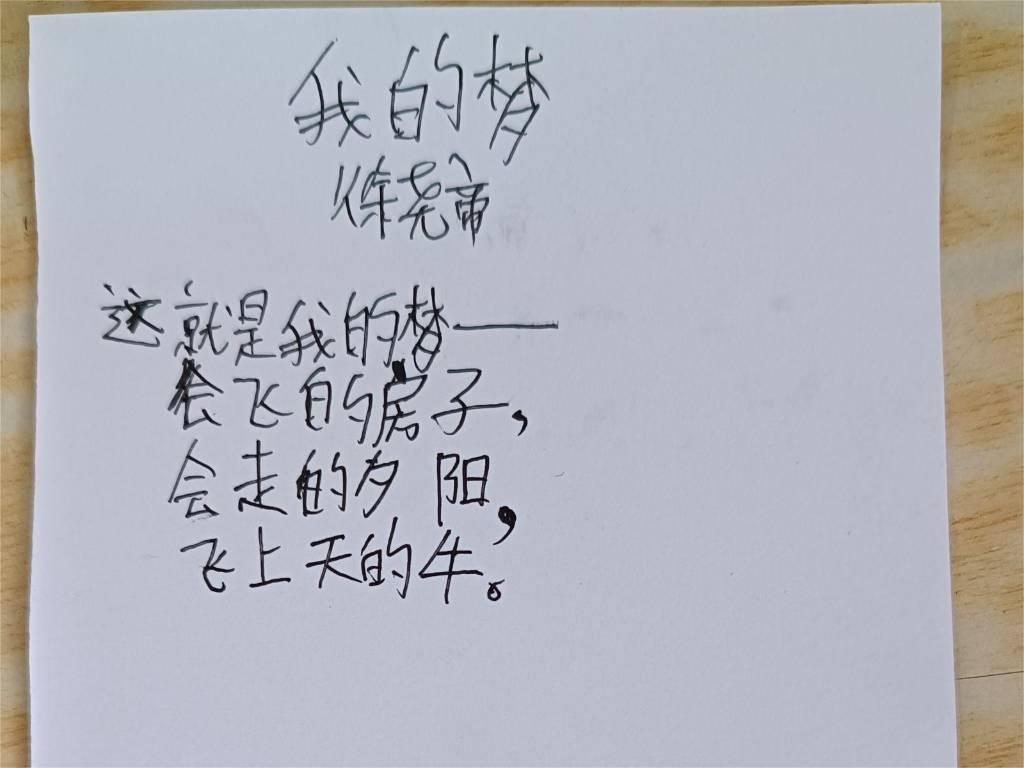 我的梦
徐尧帝
这就是我的梦——
会飞的房子，
会走的夕阳，
飞上天的牛。